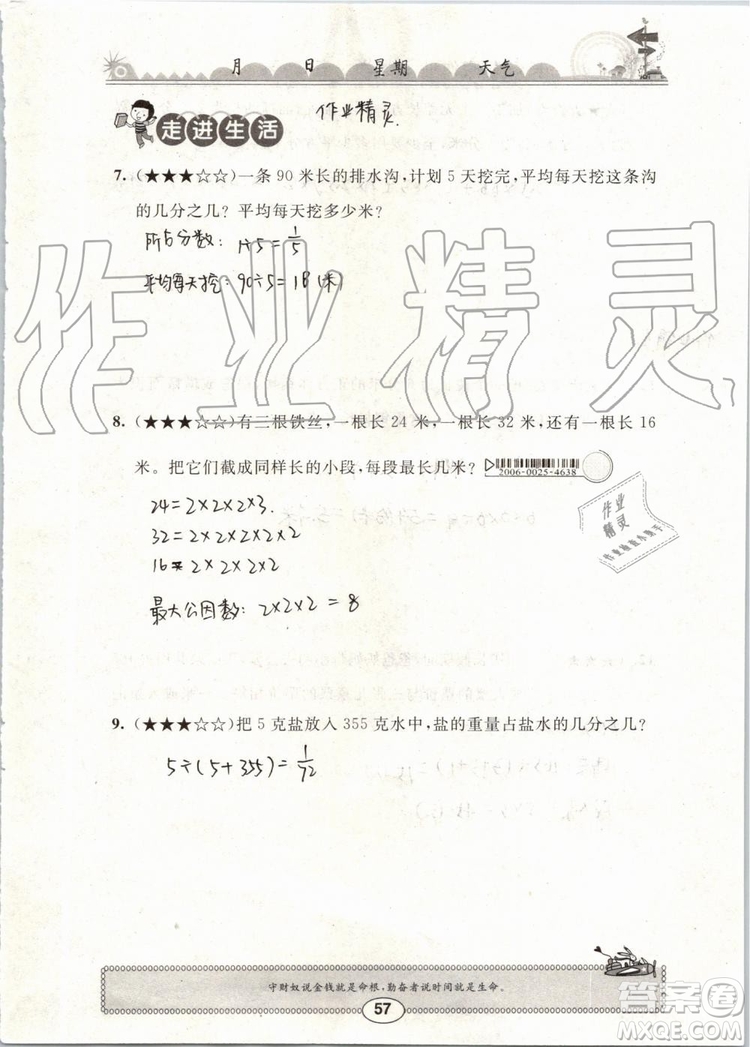 月 日 星期 天气
走进生活
作业精灵
7. (★★★☆☆)一条 90 米长的排水沟,计划 5 天挖完,平均每天挖这条沟
的几分之几?平均每天挖多少米?
所占分数: 1÷5=1/5
平均每天挖: 90÷5=18(米)
作业精灵
8. (★★★☆☆)有三根铁丝,一根长 24 米,一根长 32 米,还有一根长 16
米。把它们截成同样长的小段,每段最长几米?
2006-0025-4638
24=2×2×2×3.
32=2×2×2×2×2
16=2×2×2×2
最大公因数: 2×2×2=8
作业
精灵
9. (★★★☆☆)把 5 克盐放入 355 克水中,盐的重量占盐水的几分之几?
5÷(5+355)=1/72
守财奴说金钱就是命根,勤奋者说时间就是生命。
57
答案圈
MXQE.COM